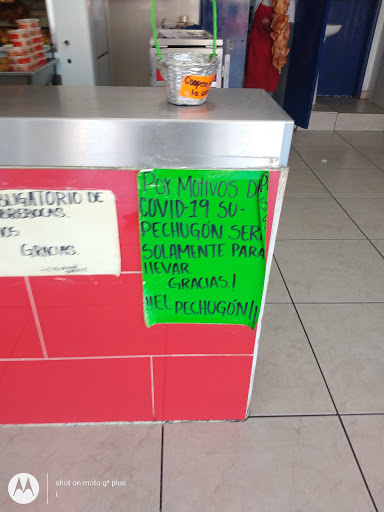 Coopera
la
BLIGATORIO DE
BREBOCAS.
OS
GRACIAS.
POR MOTIVOS DE
COVID-19 SU-
PECHUGÓN SER
SOLAMENTE PARA
LLEVAR
GRACIAS!
¡¡EL PECHUGÓN!!
shot on moto g⁶ plus
L